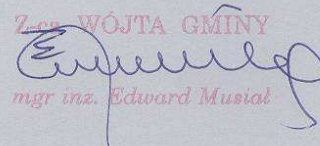 Z-ca WÓJTA GMINY
mgr inż. Edward Musiał